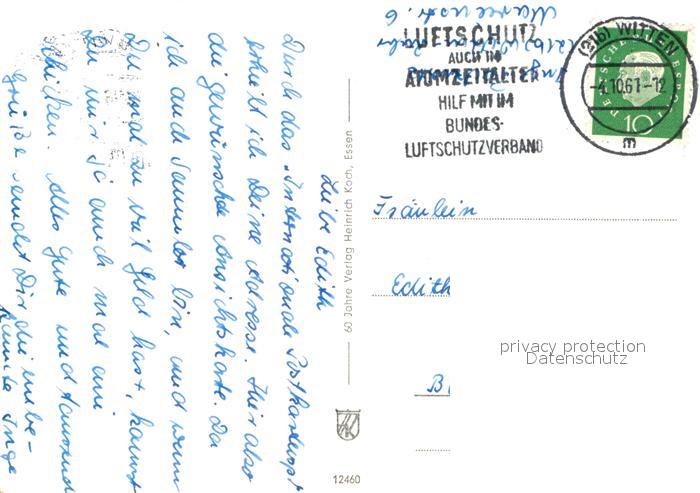 Liebe Edith
Durch das "Internationale Postkartenpost
erhielt ich Deine Adresse. Hier also
die gewünschte Ansichtskarte. Da
ich auch Sammler bin, und wenn
Du mal zu viel Geld hast, kannst
Du mir ja auch mal eine
schicken. Alles Gute und tausend
Grüße sendet Dir die unbe-
kannte Inge
60 Jahre Verlag Heinrich Koch, Essen
12460
LUFTSCHUTZ
AUCH IM
ATOMZEITALTER
HILF MIT IM
BUNDES-
LUFTSCHUTZVERBAND
(21b) WITTEN
-4.10.61-12
m
DEUTSCHE BUNDESPOST
10
Inge
(21b)
6
Fräulein
Edith
B
privacy protection
Datenschutz